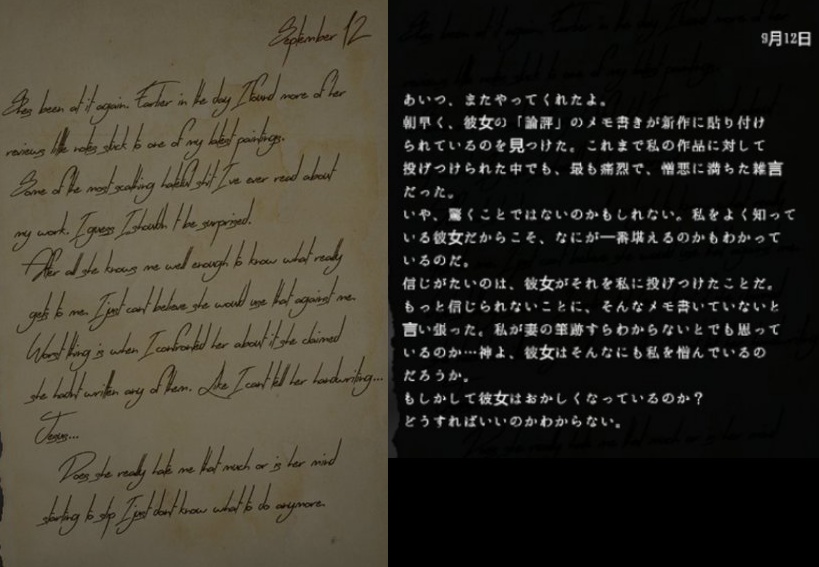 September 12
She's been at it again. Earlier in the day I found more of her
reviews like notes stuck to one of my latest paintings.
Some of the most scathing hateful shit I've ever read about
my work. I guess I shouldn't be surprised.
After all she knows me well enough to know what really
gets to me. I just cant believe she would use that against me.
Worst thing is when I confronted her about it she claimed
she hadnt written any of them. Like I cant tell her handwriting...
Jesus...
Does she really hate me that much or is her mind
starting to slip I just dont know what to do anymore.
9月12日
あいつ、またやってくれたよ。
朝早く、彼女の「論評」のメモ書きが新作に貼り付け
られているのを見つけた。これまで私の作品に対して
投げつけられた中でも、最も痛烈で、憎悪に満ちた雑言
だった。
いや、驚くことではないのかもしれない。私をよく知って
いる彼女だからこそ、なにが一番堪えるのかもわかって
いるのだ。
信じがたいのは、彼女がそれを私に投げつけたことだ。
もっと信じられないことに、そんなメモ書いていないと
言い張った。私が妻の筆跡すらわからないとでも思って
いるのか…神よ、彼女はそんなにも私を憎んでいるの
だろうか。
もしかして彼女はおかしくなっているのか？
どうすればいいのかわからない。